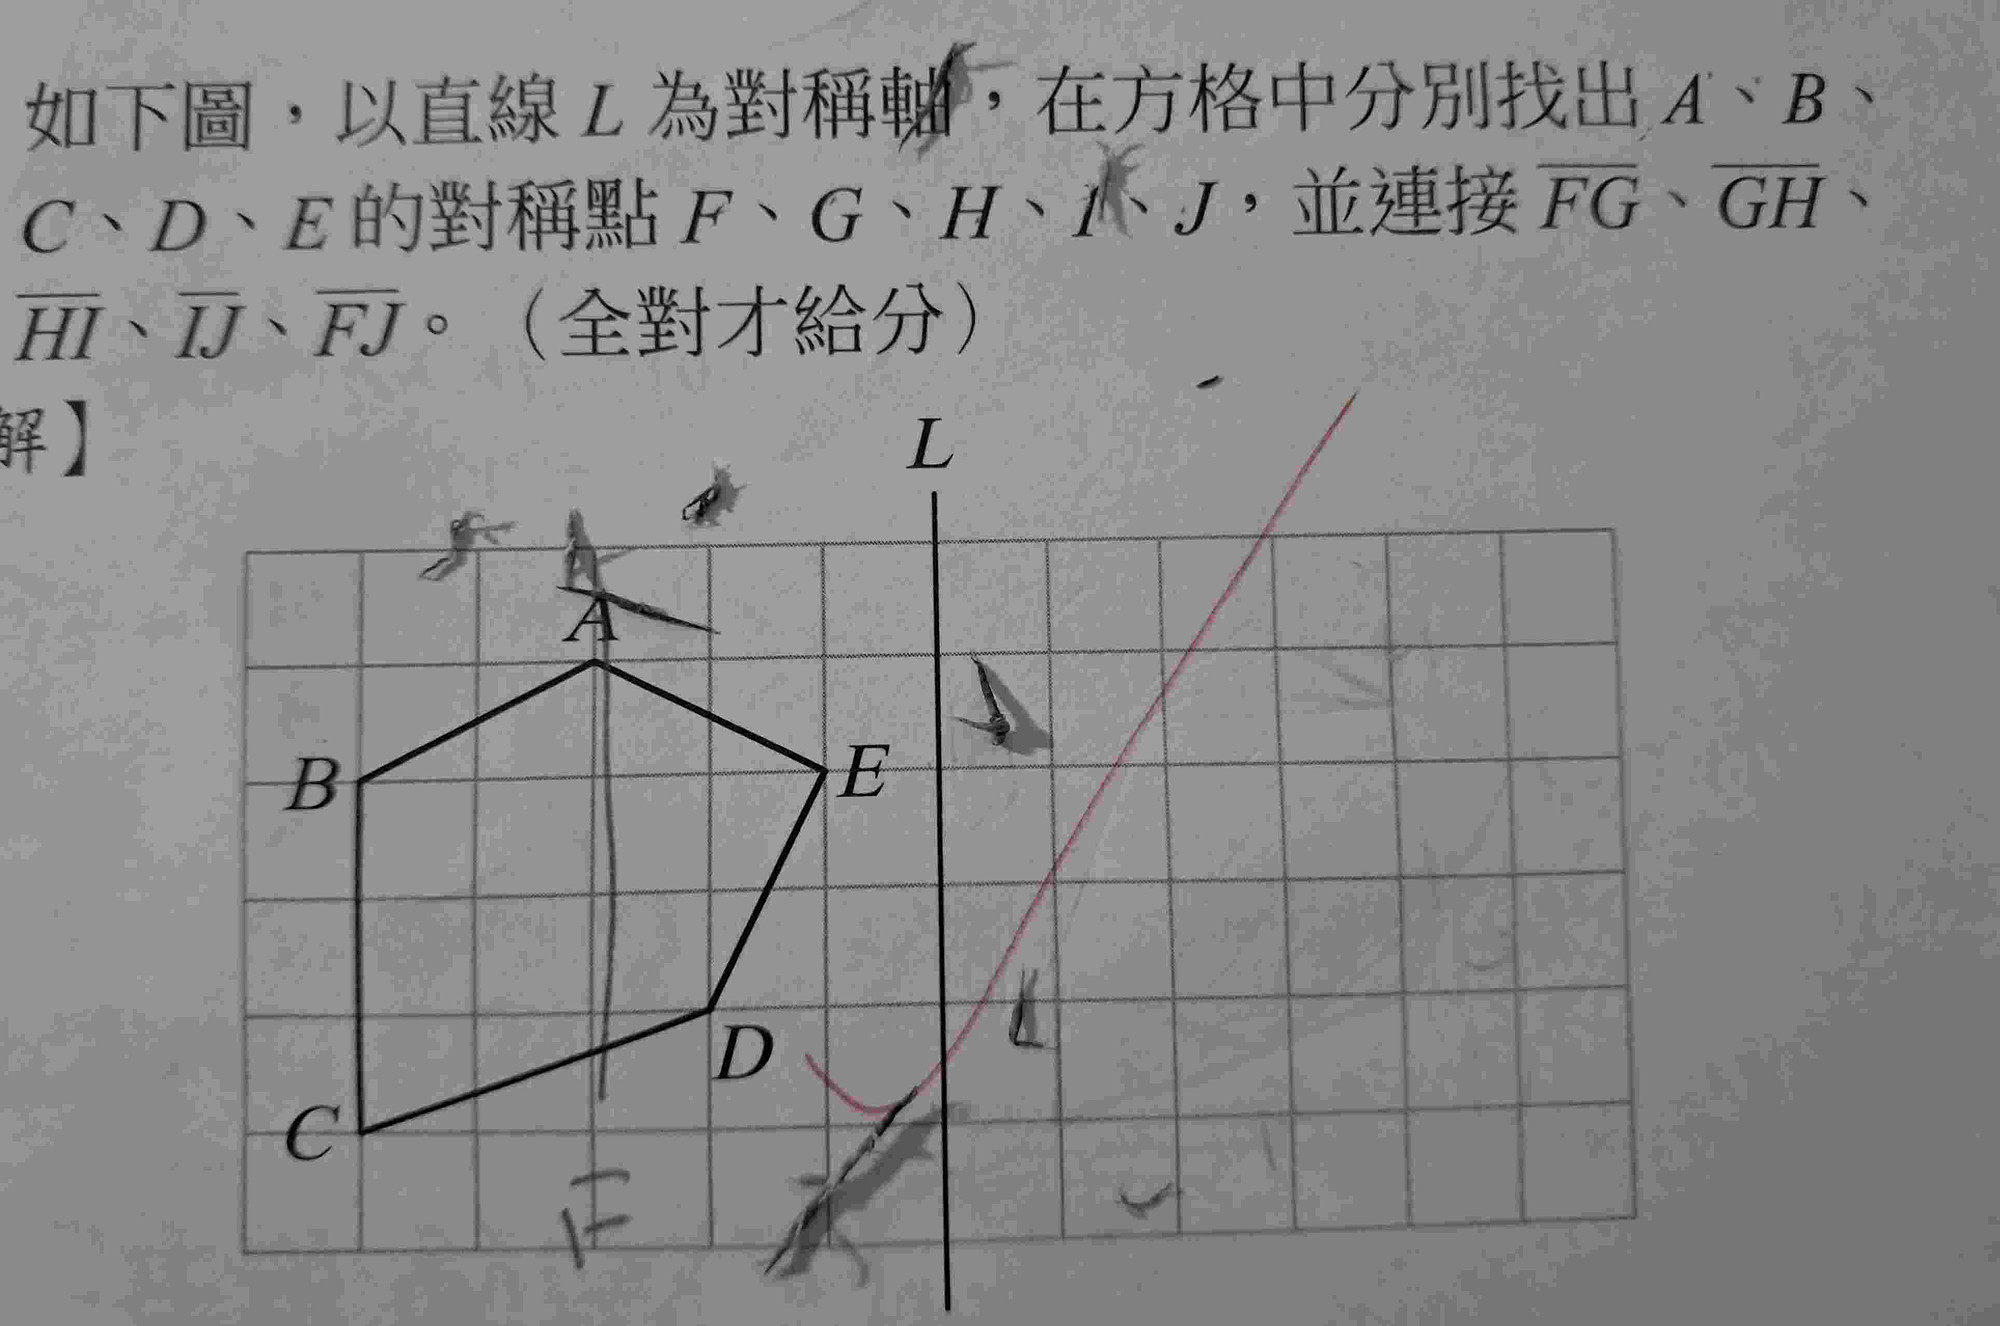 如下圖，以直線 L 為對稱軸，在方格中分別找出 A、B、
C、D、E 的對稱點 F、G、H、I、J，並連接 FG、GH、
HI、IJ、FJ。（全對才給分）
解】
L
A
B
E
D
C
F